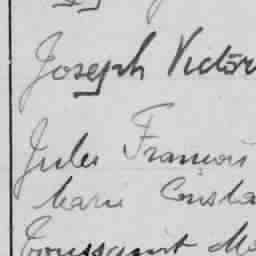 Joseph Victor
Jules François
Marie Consta
Toussaint Ma